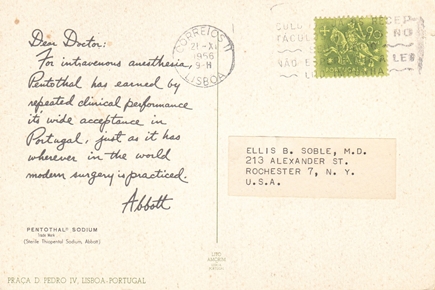 Dear Doctor:
For intravenous anesthesia,
Pentothal has earned by
repeated clinical performance
its wide acceptance in
Portugal, just as it has
wherever in the world
modern surgery is practiced.
Abbott
PENTOTHAL® SODIUM
Trade Mark
(Sterile Thiopental Sodium, Abbott)
PRAÇA D. PEDRO IV, LISBOA-PORTUGAL
CORREIOS 11
1956
9-H
LISBOA
ELLIS B. SOBLE, M.D.
213 ALEXANDER ST.
ROCHESTER 7, N. Y.
U.S.A.